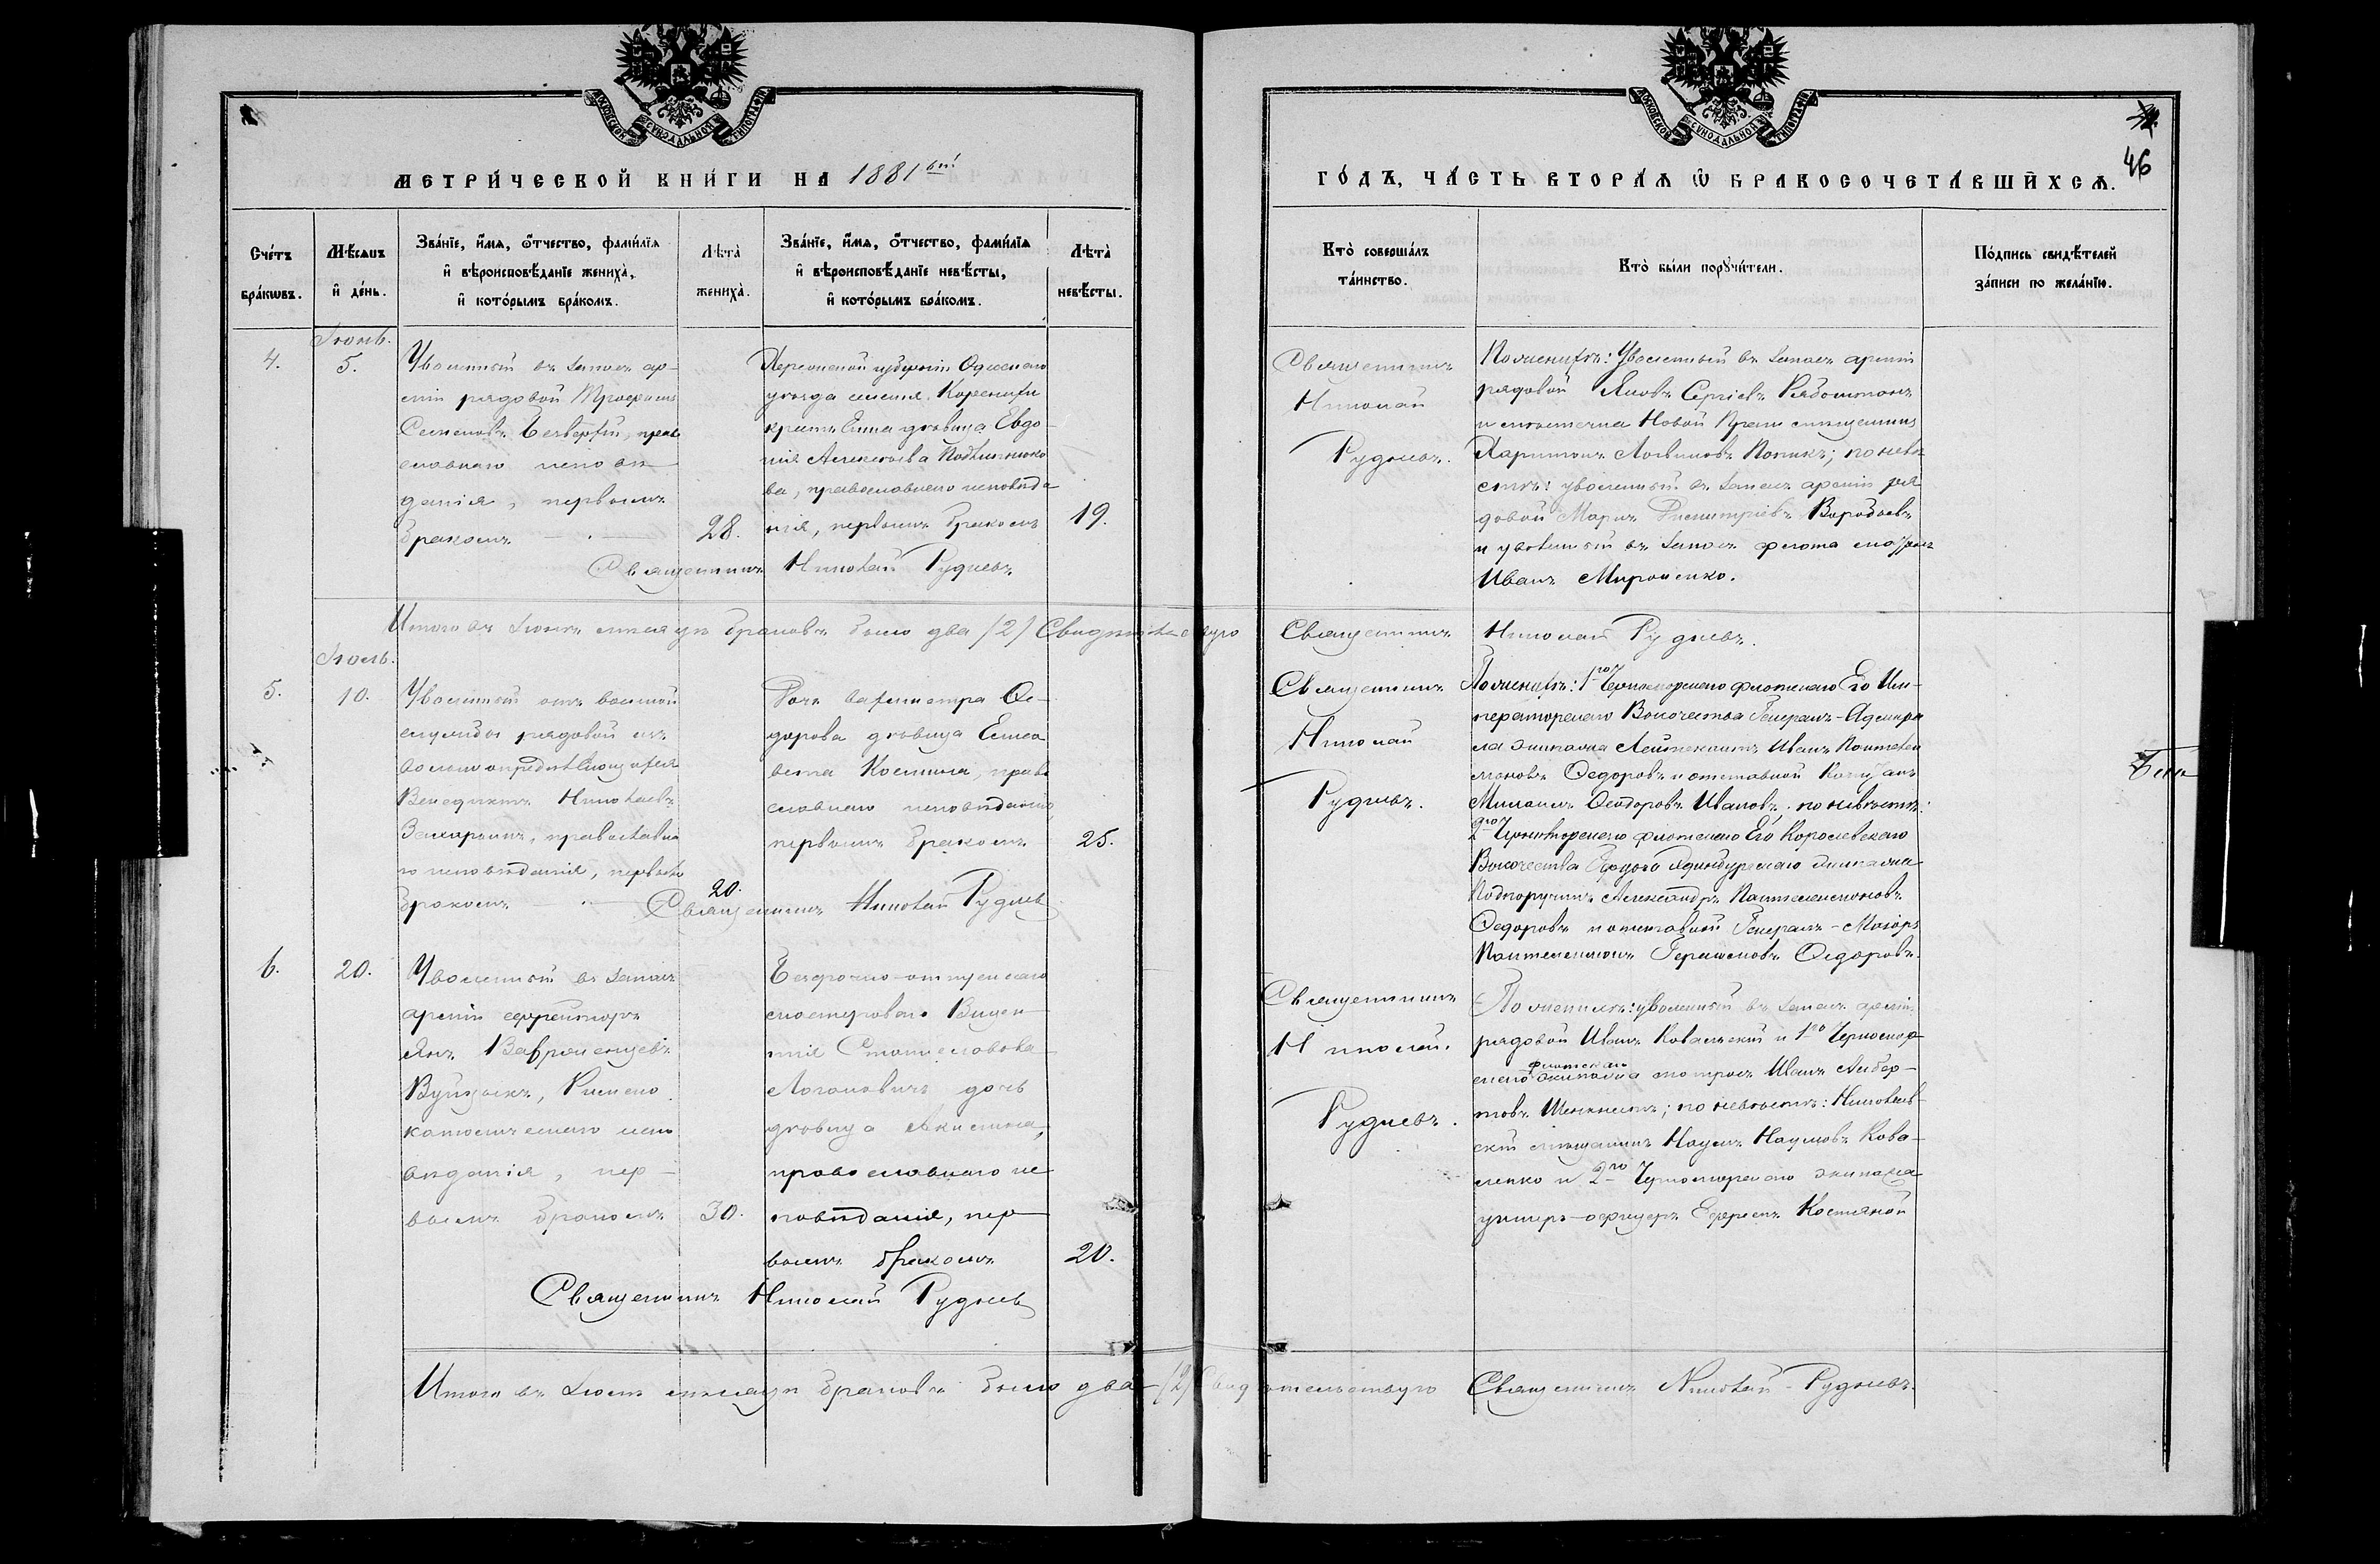 46
МОСКОВСКОЙ СУНОДАЛЬНОЙ ТИПОГРАФІИ
МОСКОВСКОЙ СУНОДАЛЬНОЙ ТИПОГРАФІИ
МЕТРИ́ЧЕСКОЙ КНИ́ГИ НА 1881ый
ГО́ДЪ, ЧА́СТЬ ВТОРА́Ѧ Ѡ҆ БРАКОСОЧЕТА́ВШИХСѦ.
Сче́тъ
бра́кѡвъ.
Мѣ́сѧцъ
и҆ де́нь.
Зва́нїе, и҆́мѧ, ѻ҆́тчество, фами́лїѧ
и҆ вѣроисповѣ́данїе жениха̀,
и҆ кото́рымъ бра́комъ.
Лѣта̀
жениха̀.
Зва́нїе, и҆́мѧ, ѻ҆́тчество, фами́лїѧ
и҆ вѣроисповѣ́данїе невѣ́сты,
и҆ кото́рымъ бра́комъ.
Лѣта̀
невѣ́сты.
Кто̀ соверша́лъ
та́инство.
Кто̀ бы́ли порꙋчи́тели.
По́дпись свидѣ́телей
за́писи по жела́нїю.
Іюнь.
4.
5.
Уволенный въ запасъ ар-
міи рядовой Трофимъ
Семеновъ право
славнаго исповѣ
данія, первымъ
бракомъ
28.
Херсонской губерніи Одесскаго
уѣзда имѣнія
дѣвица Евдо-
кія Алексѣева
ва, православнаго исповѣда
нія, первымъ бракомъ
19.
Священникъ Николай Рудневъ
Священникъ
Николай
Рудневъ.
По женихѣ: Уволенный въ запасъ арміи
рядовой Яковъ Сергіевъ
и мѣстечка Новой Праги мѣщанинъ
Харитонъ Логвиновъ Попикъ; по невѣ
стѣ: уволенный въ запасъ арміи ря
довой Марк Димитріевъ Воробьевъ
и уволенный въ запасъ флота матросъ
Иванъ Мироненко.
Итого въ Іюнѣ мѣсяцѣ браковъ было два (2) Свидѣтельствую
Священникъ Николай Рудневъ.
Іюль.
5.
10.
Уволенный отъ военной
службы рядовой изъ
вольноопредѣляющихся
Венедиктъ Николаевъ
Захарьинъ, православна
го исповѣданія, первымъ
бракомъ
20.
Дочь вахмистра Ѳе-
дорова дѣвица Елиса
вета Костина, право
славнаго исповѣданія,
первымъ бракомъ
25.
Священникъ Николай Рудневъ
Священникъ
Николай
Рудневъ.
По женихѣ: 1го Черноморскаго флотскаго Его Им-
ператорскаго Высочества Генералъ-Адмира
ла экипажа Лейтенантъ Иванъ Пантелей
моновъ Ѳедоровъ и отставной Капитанъ
Михаилъ Ѳеодоровъ Ивановъ; по невѣстѣ:
2го Черноморскаго флотскаго Его Королевскаго
Высочества Герцога Эдинбургскаго экипажа
Подпоручикъ Александръ Пантелеимоновъ
Ѳедоровъ и отставной Генералъ-Маіоръ
Пантелеимонъ Герасимовъ Ѳедоровъ.
6.
20.
Уволенный въ запасъ
арміи ефрейторъ
Янъ Вавренцевъ
Вуйцикъ, Римско
католическаго испо
вѣданія, пер-
вымъ бракомъ
30.
Безсрочно-отпускнаго
мастероваго Викен-
тія Станиславова
дочь
дѣвица Аксинія,
православнаго ис
повѣданія, пер
вымъ бракомъ
20.
Священникъ Николай Рудневъ
Священникъ
Николай
Рудневъ.
По женихѣ: уволенный въ запасъ арміи
рядовой Иванъ Ковальскій и 1го Черномор
скаго флотскаго экипажа матросъ Иванъ Альбер-
товъ по невѣстѣ: Николаев
скій мѣщанинъ Наумъ Наумовъ Кова-
ленко и 2го Черноморскаго экипажа
унтеръ-офицеръ Ефремъ Костяной
Итого въ Іюлѣ мѣсяцѣ браковъ было два (2) Свидѣтельствую Священникъ Николай Рудневъ.